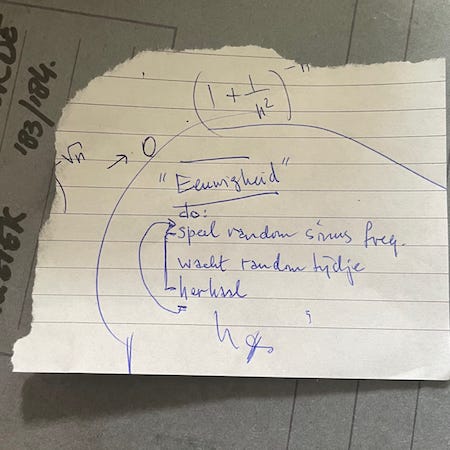 (1 + 1/n²)^-n
√n → 0
"Eeuwigheid"
do:
speel random sinus freq.
wacht random tijdje
herhaal
'83/'84.